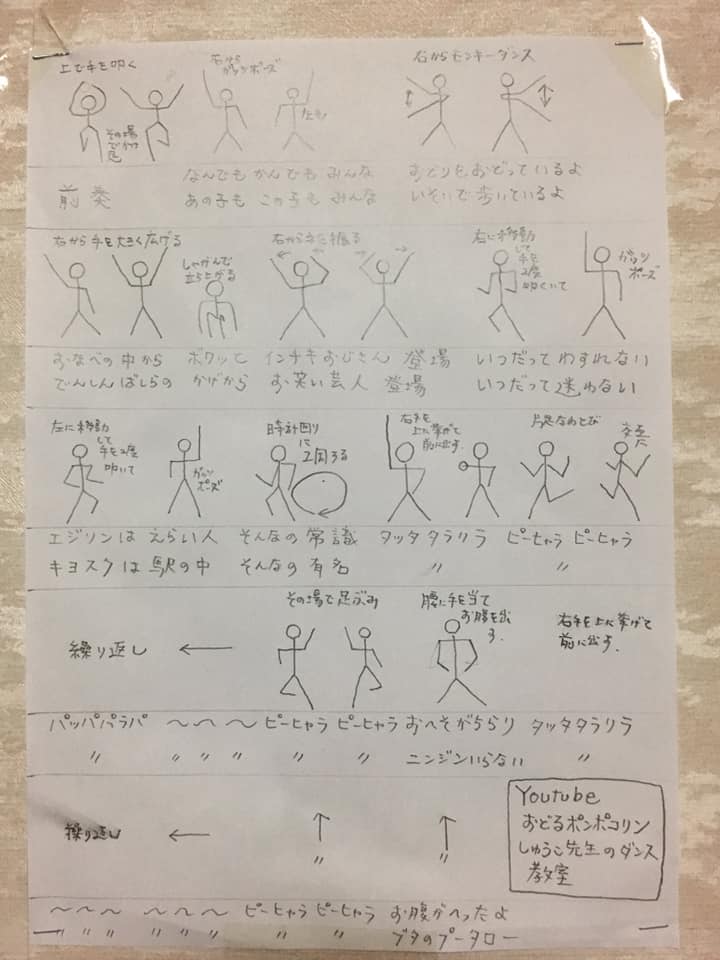 上で手を叩く
その場で
右から
ガッツポーズ
左も
右からモンキーダンス
前奏
なんでも かんでも みんな おどりをおどっているよ
あの子も この子も みんな いそいで歩いているよ
右から手を大きく広げる
しゃがんで
立ち上がる
右から手を振る
右に移動
して
手を
2度
叩いて
ガッツ
ポーズ
おなべの中から ボワッと インチキおじさん 登場 いつだって わすれない
でんしんばしらの かげから お笑い芸人 登場 いつだって 迷わない
左に移動
して
手を2度
叩いて
ガッツ
ポーズ
時計回り
に
2周する
右手を
上に挙げて
前に出す。
片足なわとび
交互に
エジソンは えらい人 そんなの 常識 タッタ タラリラ ピーヒャラ ピーヒャラ
キヨスクは 駅の中 そんなの 有名 〃 〃
繰り返し ←
その場で足ぶみ
腰に手を当て
お腹を出
す.
右手を上に挙げて
前に出す.
パッパパラパ 〜 〜 〜 ピーヒャラ ピーヒャラ おへそがちらり タッタタラリラ
〃 〃 〃 〃 〃 〃 ニンジンいらない 〃
繰り返し ← ↑ ↑
〃 〃
Youtube
おどるポンポコリン
しゅうこ先生のダンス
教室
〜 〜 〜 〜 〜 〜 ピーヒャラ ピーヒャラ お腹がへったよ
〃 〃 〃 〃 〃 〃 〃 〃 ブタのプータロー